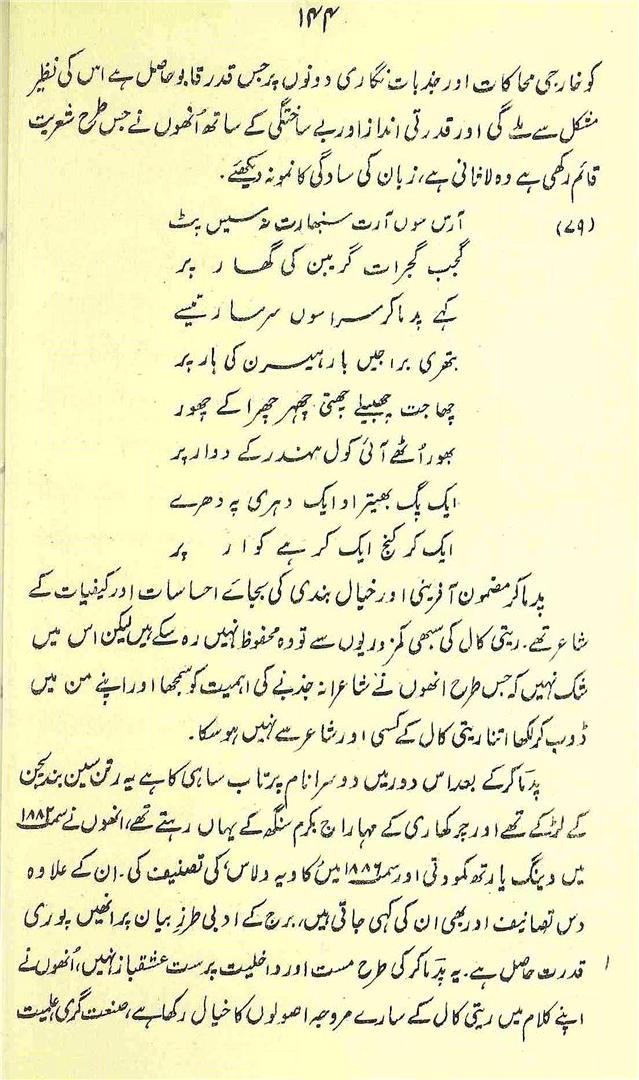 ۱۴۴
کو خارجی محاکات اور جذبات نگاری دونوں پر جس قدر قابو حاصل ہے اس کی نظیر
مشکل سے ملے گی اور قدرتی انداز اور بے ساختگی کے ساتھ اُنھوں نے جس طرح شعریت
قائم رکھی ہے وہ لاثانی ہے، زبان کی سادگی کا نمونہ دیکھئے.
(۷۹) آرس سوں آرت سنبھارت نہ سیس پٹ
گجب گجرات گریبن کی گھار پر
کہے پدماکر سراسوں سرسار تیسے
بتھری براجیں بار ہیرن کی ہار پر
چھاجت چھبیلے چھتی چھہر چھرا کے چھور
بھور اُٹھے آئی کول مندر کے دوار پر
ایک پگ بھیتر او ایک دہری پہ دھرے
ایک کر کنج ایک کر ہے کوار پر
پدماکر مضمون آفرینی اور خیال بندی کی بجائے احساسات اور کیفیات کے
شاعر تھے. ریتی کال کی سبھی کمزوریوں سے تو وہ محفوظ نہیں رہ سکے ہیں لیکن اس میں
شک نہیں کہ جس طرح انھوں نے شاعرانہ جذبے کی اہمیت کو سمجھا اور اپنے من میں
ڈوب کر لکھا اتنا ریتی کال کے کسی اور شاعر سے نہیں ہو سکا.
پدماکر کے بعد اس دور میں دوسرا نام پرتاب ساہی کا ہے یہ رتن سین بندیجن
کے لڑکے تھے اور چرکھاری کے مہاراج بکرم سنگھ کے یہاں رہتے تھے، انھوں نے سمت ۱۸۸۲
میں وینگ یارتھ کمودتی اور سمت ۱۸۸۶ میں 'کاویہ ولاس' کی تصنیف کی. ان کے علاوہ
دس تصانیف اور بھی ان کی کہی جاتی ہیں، برج کے ادبی طرز بیان پر انھیں پوری
قدرت حاصل ہے. یہ پدماکر کی طرح مست اور داخلیت پرست عشقباز نہیں، اُنھوں نے
اپنے کلام میں ریتی کال کے سارے مروجہ اصولوں کا خیال رکھا ہے، صنعت گری، علمیت